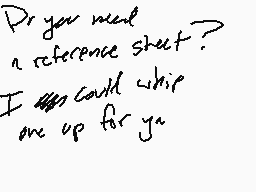 Do you need
a reference sheet?
I could whip
one up for ya